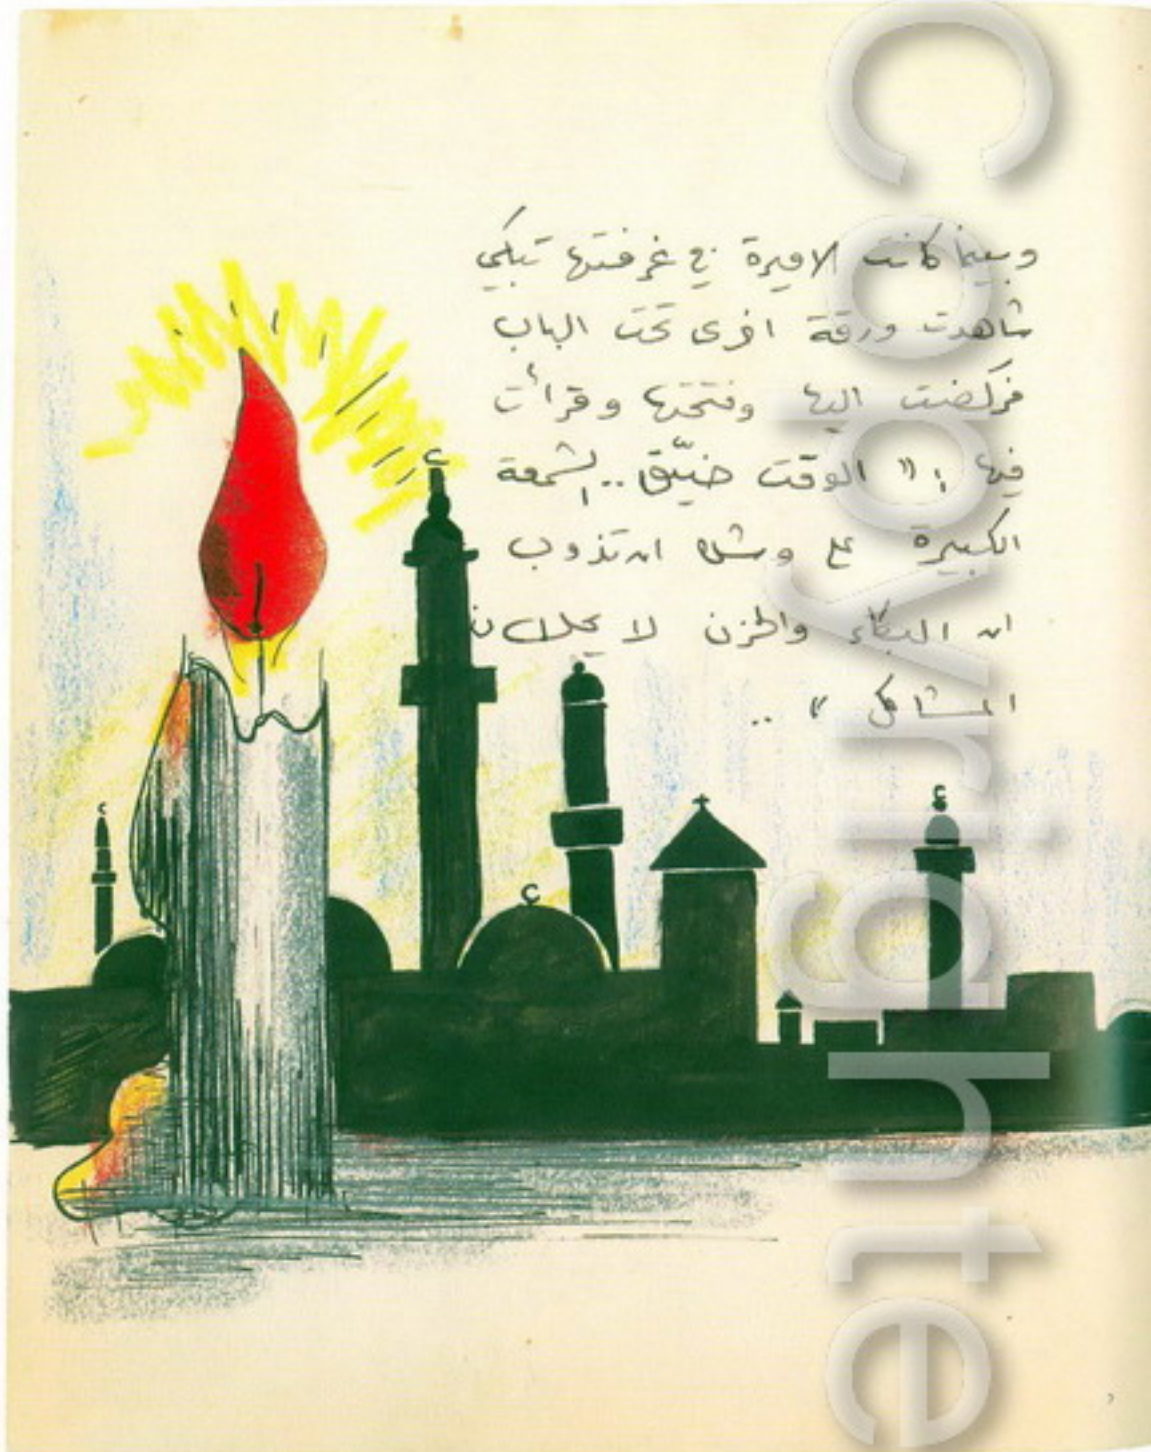 وبينما كانت الاميرة في غرفتها تبكي
شاهدت ورقة اخرى تحت الباب
فركضت اليها وفتحتها وقرأت
فيها : " الوقت ضيّق .. الشمعة
الكبيرة على وشك ان تذوب
ان البكاء والحزن لا يحلان
المشاكل " ..
Copyrighte